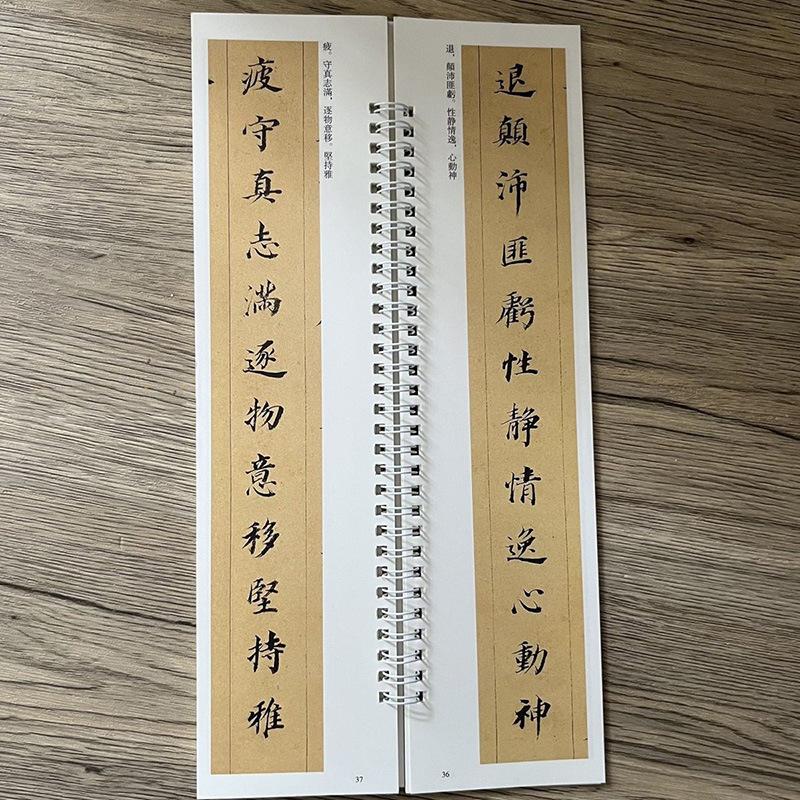 退顛沛匪虧性静情逸心動神
退，顛沛匪虧。性静情逸，心動神
36
疲守真志滿逐物意移堅持雅
疲。守真志滿，逐物意移。堅持雅
37